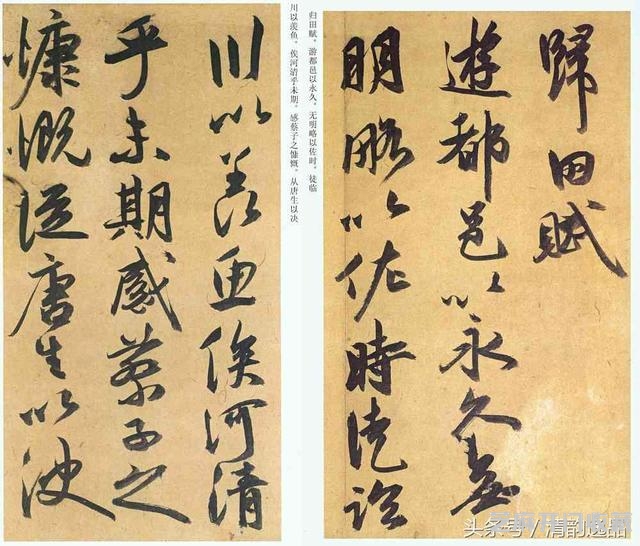 歸田賦
遊都邑以永久無
明略以佐時徒臨
归田赋。游都邑以永久，无明略以佐时，徒临
川以羡鱼，俟河清乎未期。感蔡子之慷慨，从唐生以决
川以羨魚俟河清
乎未期感蔡子之
慷慨從唐生以決
头条号/清韵逸品